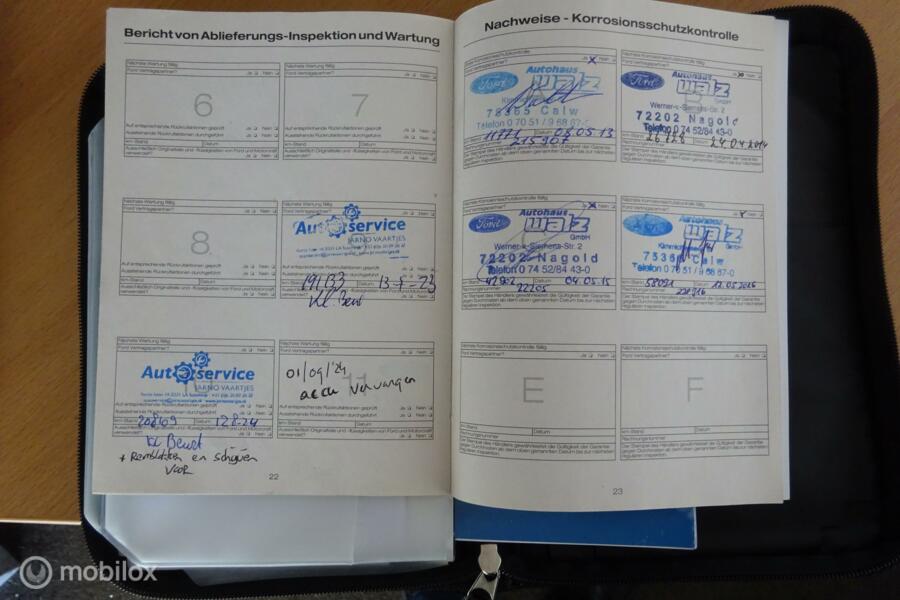 Bericht von Ablieferungs-Inspektion und Wartung
Nächste Wartung fällig
Ford Vertragspartner? Ja Nein
6
Auf entsprechende Rückrufaktionen geprüft Ja Nein
Ausstehende Rückrufaktionen durchgeführt Ja Nein
km-Stand Datum
Ausschließlich Originalteile und -flüssigkeiten von Ford und Motorcraft
verwendet? Ja Nein
Nächste Wartung fällig
Ford Vertragspartner? Ja Nein
7
Auf entsprechende Rückrufaktionen geprüft Ja Nein
Ausstehende Rückrufaktionen durchgeführt Ja Nein
km-Stand Datum
Ausschließlich Originalteile und -flüssigkeiten von Ford und Motorcraft
verwendet? Ja Nein
Nächste Wartung fällig
Ford Vertragspartner? Ja Nein
8
Auf entsprechende Rückrufaktionen geprüft Ja Nein
Ausstehende Rückrufaktionen durchgeführt Ja Nein
km-Stand Datum
Ausschließlich Originalteile und -flüssigkeiten von Ford und Motorcraft
verwendet? Ja Nein
Nächste Wartung fällig
Autoservice
JARNO VAARTJES
13-7-23
KL Beurt
Nächste Wartung fällig
Ford Vertragspartner? Ja Nein
Autoservice
JARNO VAARTJES
Auf entsprechende Rückrufaktionen geprüft Ja Nein
Ausstehende Rückrufaktionen durchgeführt Ja Nein
km-Stand Datum 12-8-24
KL Beurt
+ Remblokken en schijven
voor
Nächste Wartung fällig
Ford Vertragspartner? Ja Nein
01/09/'24
11
accu vervangen
Auf entsprechende Rückrufaktionen geprüft Ja Nein
Ausstehende Rückrufaktionen durchgeführt Ja Nein
km-Stand Datum
Ausschließlich Originalteile und -flüssigkeiten von Ford und Motorcraft
verwendet? Ja Nein
22
Nachweise - Korrosionsschutzkontrolle
Ford
Autohaus
walz
GmbH
75365 Calw
Telefon 0 70 51 / 9 68 67-0
Datum 08.05.13
Der Stempel des Händlers gewährleistet die Gültigkeit der Garantie
gegen Durchrosten ab dem oben genannten Datum bis zur nächsten
regulären Inspektion.
Ford
Autohaus
walz
GmbH
Werner-v.-Siemens-Str. 2
72202 Nagold
Telefon 0 74 52/84 43-0
24.04.2014
Der Stempel des Händlers gewährleistet die Gültigkeit der Garantie
gegen Durchrosten ab dem oben genannten Datum bis zur nächsten
regulären Inspektion.
Nächste Korrosionsschutzkontrolle fällig
Ford
Autohaus
walz
GmbH
Werner-v.-Siemens-Str. 2
72202 Nagold
Telefon 0 74 52/84 43-0
42902 04.05.15
22205
Der Stempel des Händlers gewährleistet die Gültigkeit der Garantie
gegen Durchrosten ab dem oben genannten Datum bis zur nächsten
regulären Inspektion.
Nächste Korrosionsschutzkontrolle fällig
Autohaus
walz
75365 Calw
Telefon 0 70 51 / 9 68 67-0
km-Stand 58091 Datum 12.05.2016
Rechnungsnummer
Der Stempel des Händlers gewährleistet die Gültigkeit der Garantie
gegen Durchrosten ab dem oben genannten Datum bis zur nächsten
regulären Inspektion.
Nächste Korrosionsschutzkontrolle fällig
Ford Vertragspartner? Ja Nein
E
km-Stand Datum
Rechnungsnummer
Der Stempel des Händlers gewährleistet die Gültigkeit der Garantie
gegen Durchrosten ab dem oben genannten Datum bis zur nächsten
regulären Inspektion.
Nächste Korrosionsschutzkontrolle fällig
Ford Vertragspartner? Ja Nein
F
km-Stand Datum
Rechnungsnummer
Der Stempel des Händlers gewährleistet die Gültigkeit der Garantie
gegen Durchrosten ab dem oben genannten Datum bis zur nächsten
regulären Inspektion.
23
mobilox